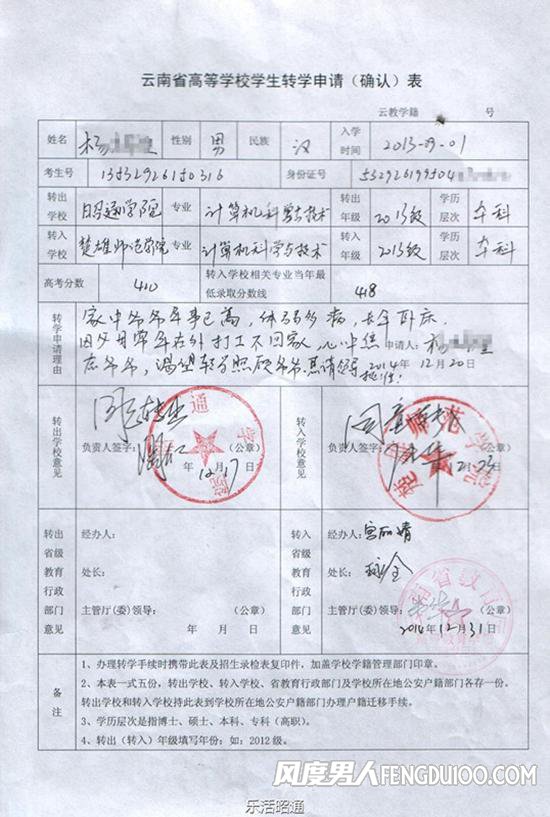 云南省高等学校学生转学申请（确认）表
云教学籍 号
姓名 杨 性别 男 民族 汉 入学时间 2013-09-01
考生号 身份证号
转出学校 昭通学院 专业 计算机科学与技术 转出年级 2013级 学历层次 本科
转入学校 楚雄师范学院 专业 计算机科学与技术 转入年级 2013级 学历层次 本科
高考分数 410 转入学校相关专业当年最低录取分数线 418
转学申请理由
家中爷爷年事已高，体弱多病，长年卧床
因父母常年在外打工不回家，心中焦 申请人：杨
虑爷爷，渴望转学照顾爷爷。恳请领导批准！ 2014年12月20日
转出学校意见
同意转出
负责人签字： （公章）
年 月 日
12.17
转入学校意见
同意
负责人签字： （公章）
12.23
转出省级教育行政部门意见
经办人：
处长：
主管厅（委）领导： （公章）
年 月 日
转入省级教育行政部门意见
经办人：
处长：
主管厅（委）领导： （公章）
2014年12月31日
备注
1、办理转学手续时携带此表及招生录检表复印件，加盖学校学籍管理部门印章。
2、本表一式五份，转出学校、转入学校、省教育行政部门及学校所在地公安户籍部门各存一份。
转出学校和转入学校持此表到学校所在地公安户籍部门办理户籍迁移手续。
3、学历层次是指博士、硕士、本科、专科（高职）。
4、转出（转入）年级填写年份：如：2012级。
风度男人FENGDU100.COM
乐活昭通